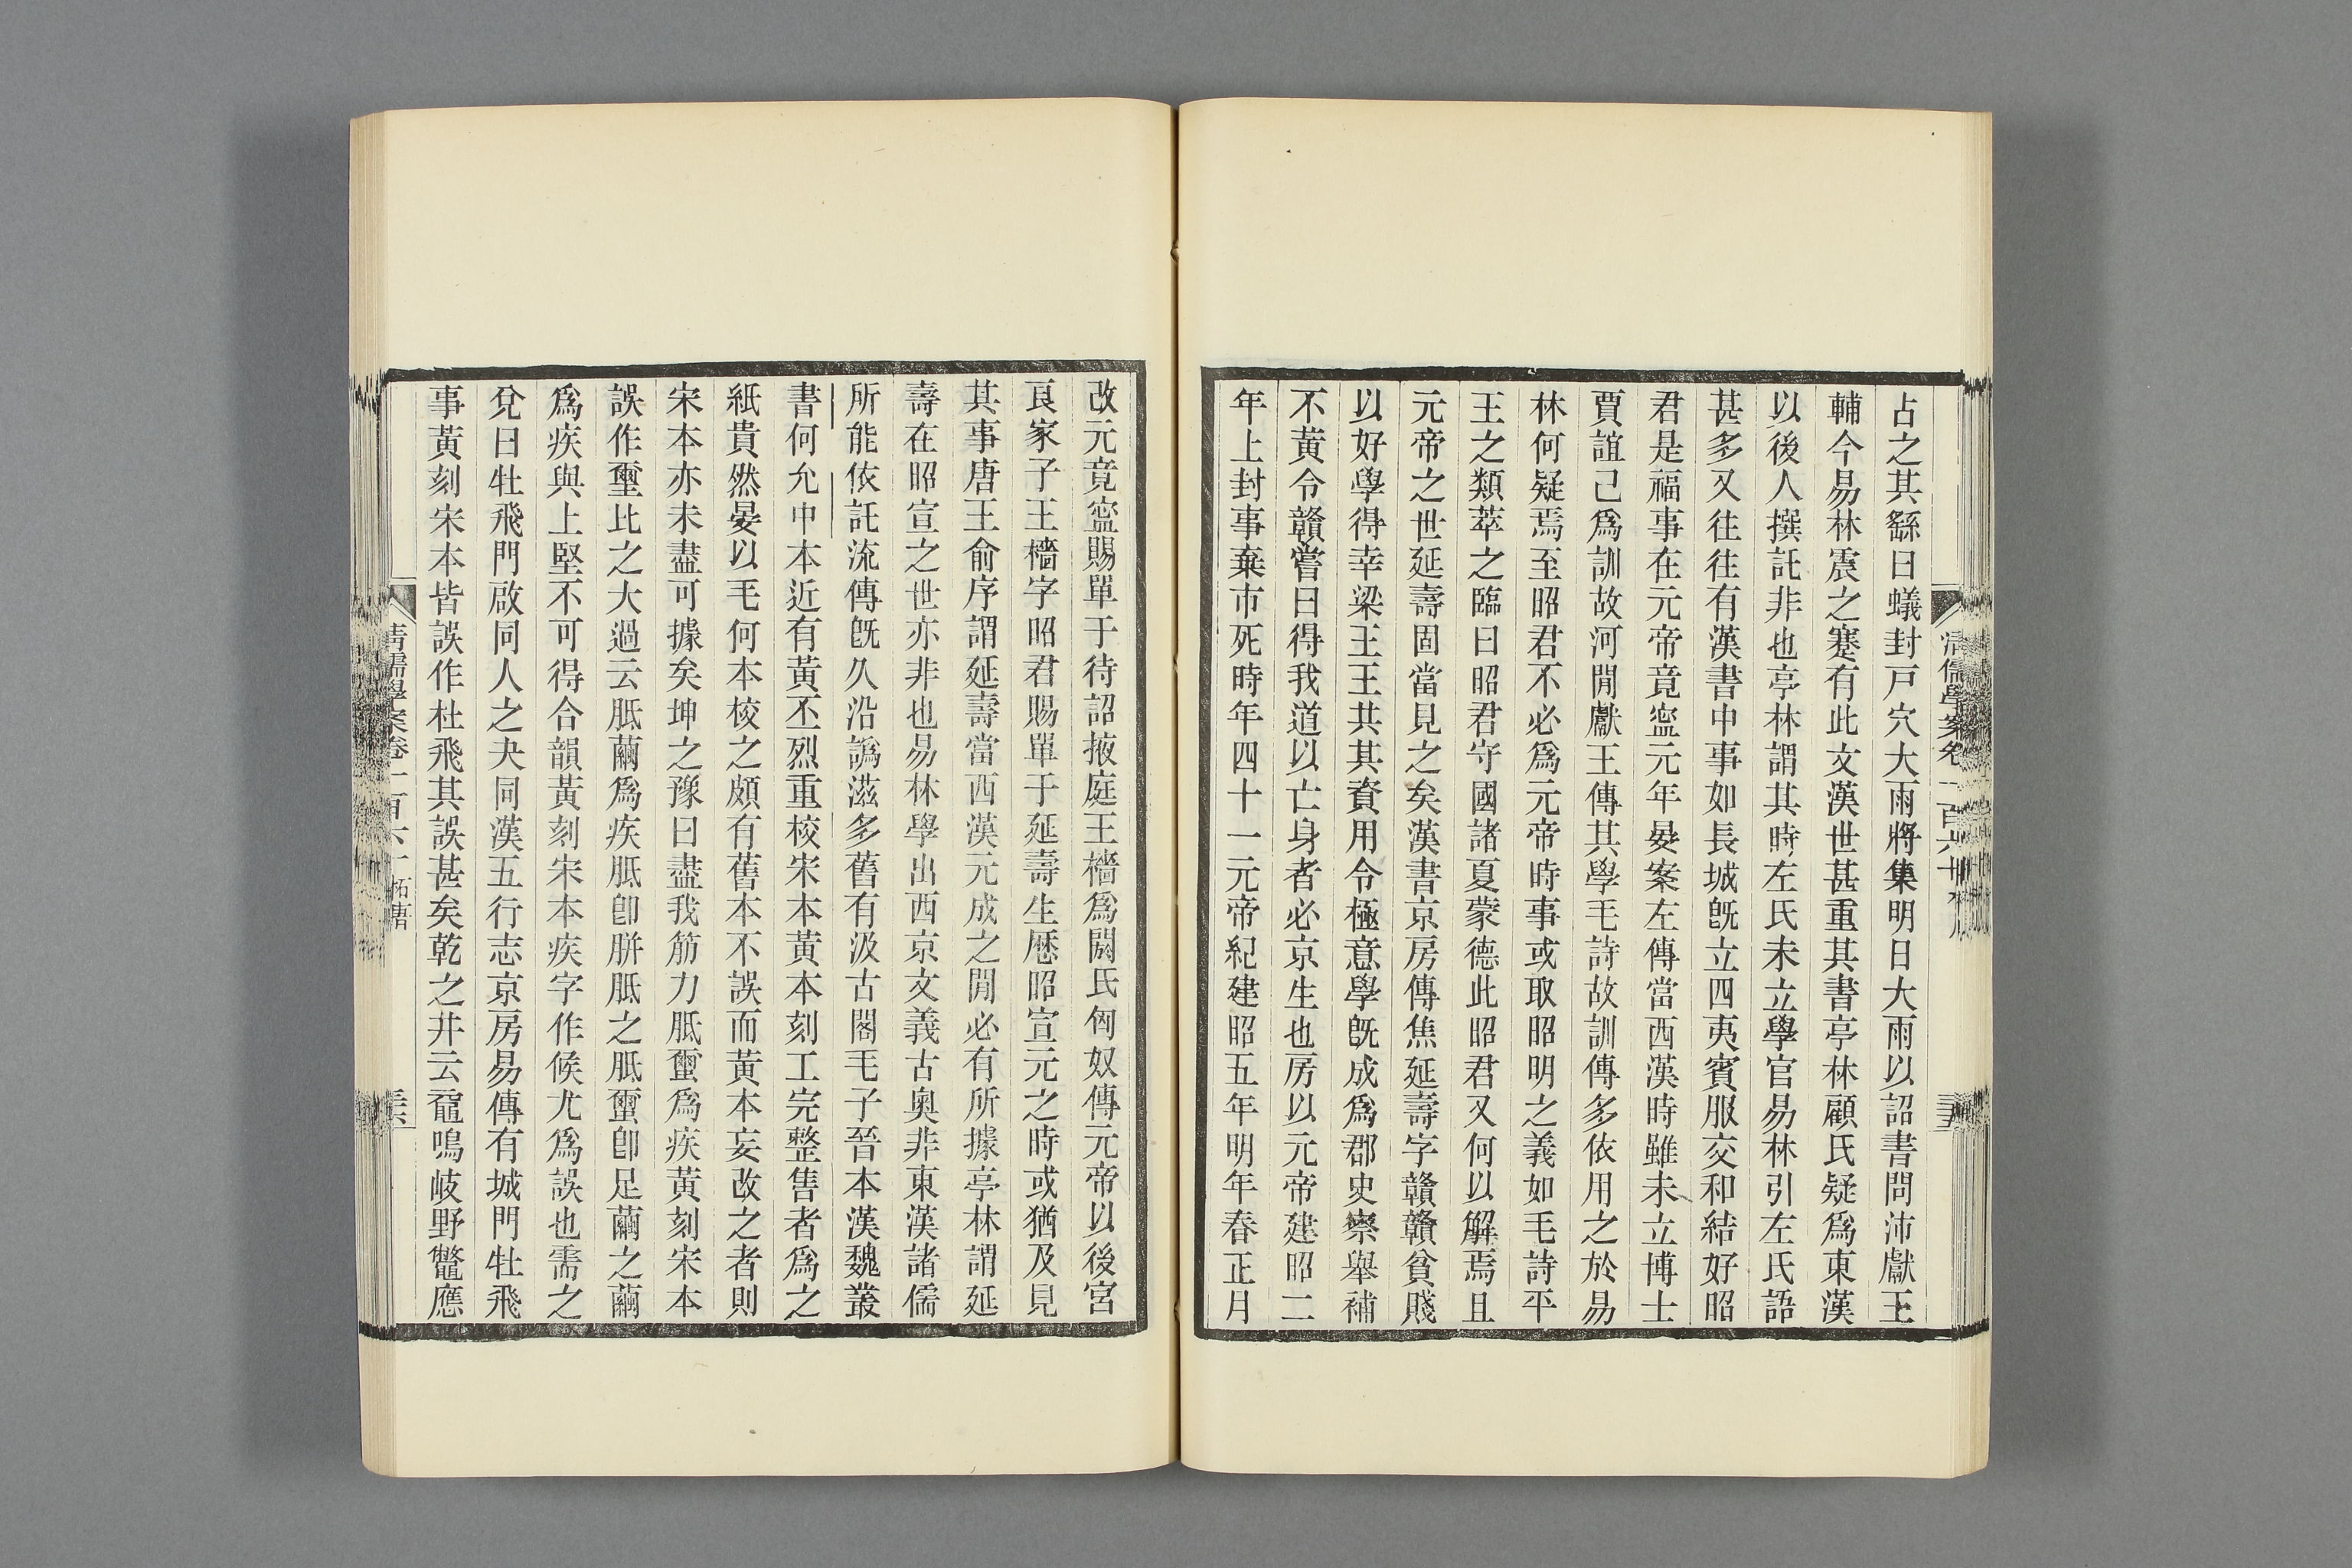 占之其繇曰蟻封戸穴大雨將集明日大雨以詔書問沛獻王
輔今易林震之蹇有此文漢世甚重其書亭林顧氏疑爲東漢
以後人撰託非也亭林謂其時左氏未立學官易林引左氏語
甚多又往往有漢書中事如長城旣立四夷賓服交和結好昭
君是福事在元帝竟寍元年晏案左傳當西漢時雖未立博士
賈誼已爲訓故河閒獻王傳其學毛詩故訓傳多依用之於易
林何疑焉至昭君不必爲元帝時事或取昭明之義如毛詩平
王之類萃之臨曰昭君守國諸夏蒙德此昭君又何以解焉且
元帝之世延壽固當見之矣漢書京房傳焦延壽字贛贛貧賤
以好學得幸梁王王共其資用令極意學旣成爲郡史察舉補
小黃令贛嘗曰得我道以亡身者必京生也房以元帝建昭二
年上封事棄市死時年四十一元帝紀建昭五年明年春正月
清儒學案卷一百六十
三五
改元竟寍賜單于待詔掖庭王檣爲閼氏匈奴傳元帝以後宮
良家子王檣字昭君賜單于延壽生歷昭宣元之時或猶及見
其事唐王俞序謂延壽當西漢元成之閒必有所據亭林謂延
壽在昭宣之世亦非也易林學出西京文義古奧非東漢諸儒
所能依託流傳旣久沿譌滋多舊有汲古閣毛子晉本漢魏叢
書何允中本近有黃丕烈重校宋本黃本刻工完整售者爲之
紙貴然晏以毛何本校之頗有舊本不誤而黃本妄改之者則
宋本亦未盡可據矣坤之豫曰盡我筋力胝蠒爲疾黃刻宋本
誤作壐比之大過云胝繭爲疾胝卽胼胝之胝蠒卽足繭之繭
爲疾與上堅不可得合韻黃刻宋本疾字作候尤爲誤也需之
兌曰牡飛門啟同人之夬同漢五行志京房易傳有城門牡飛
事黃刻宋本皆誤作杜飛其誤甚矣乾之井云黿鳴岐野鼈應
清儒學案卷一百六十 柘唐
三六